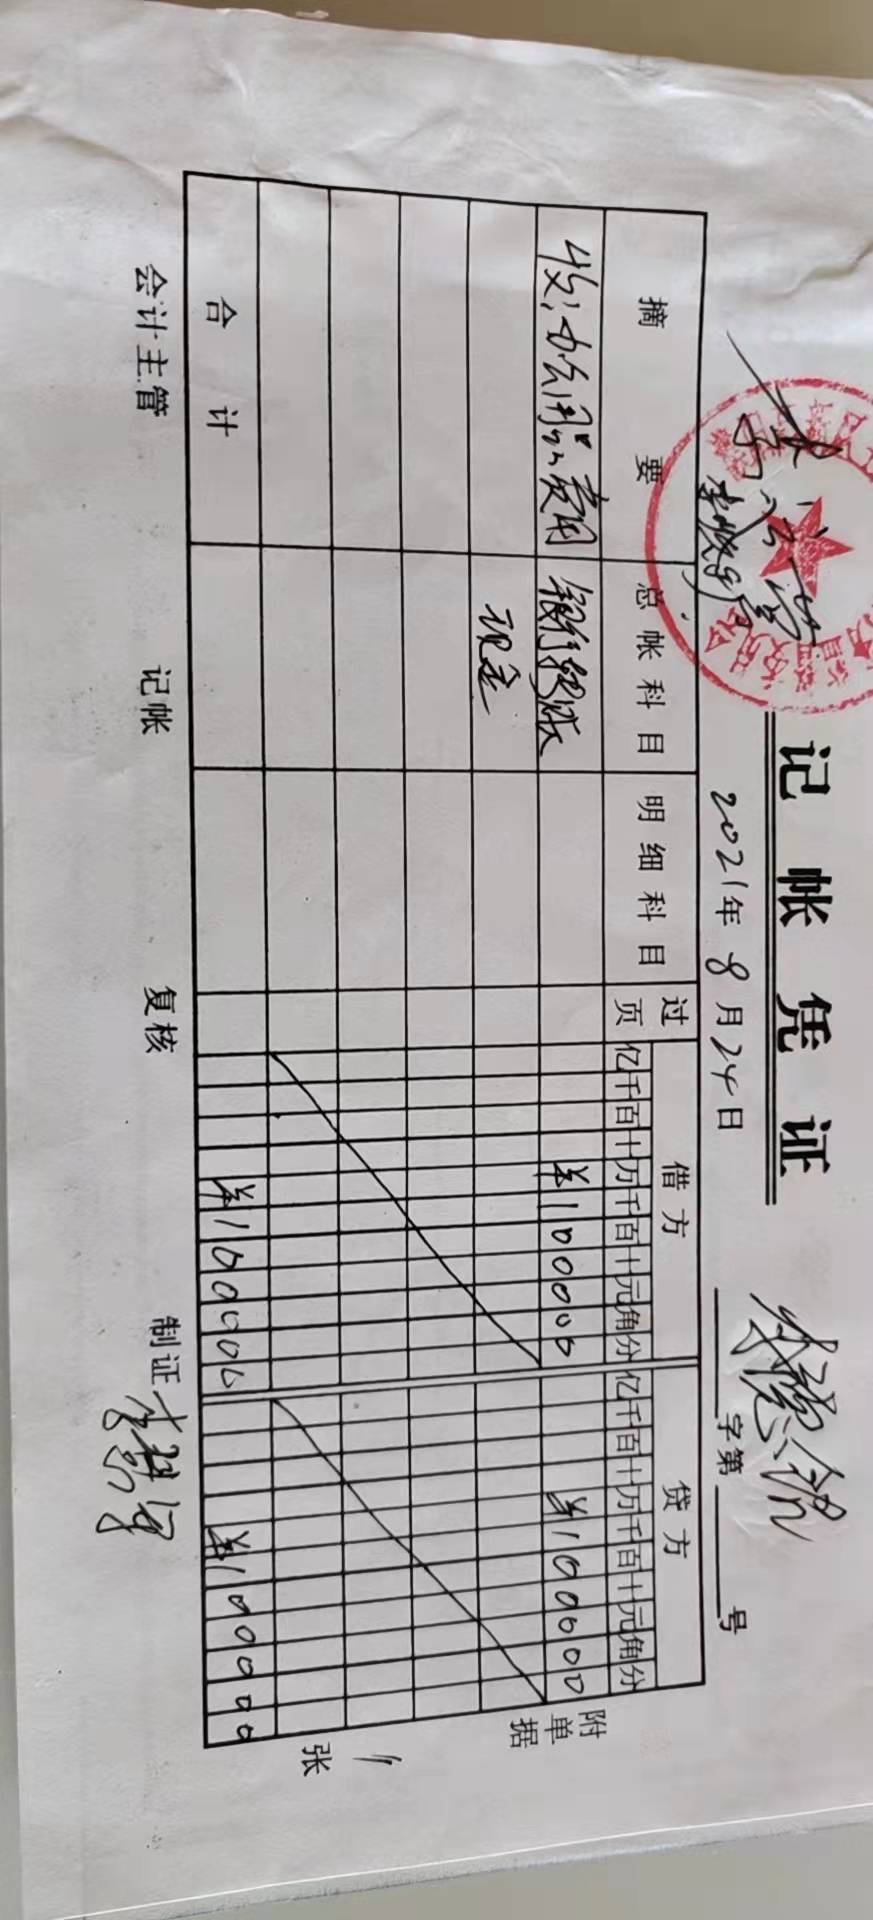 记帐凭证
2021年8月24日
字第 号
摘要 总帐科目 明细科目 过页 借方 贷方
亿千百十万千百十元角分 亿千百十万千百十元角分
收:办公用品费用 银行转账 ¥100000 ¥100000
现金
合计 ¥100000 ¥100000
附单据 11 张
会计主管 记帐 复核 制证